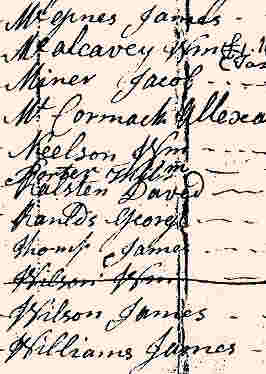 McGones James
McCalcavey Wm
Miner Jacob
McCormack Allexa
Neelson Wm
Porter Willm
Ralsten David
Raulds George
Thomp James
Wilson Wm
Wilson James
Williams James